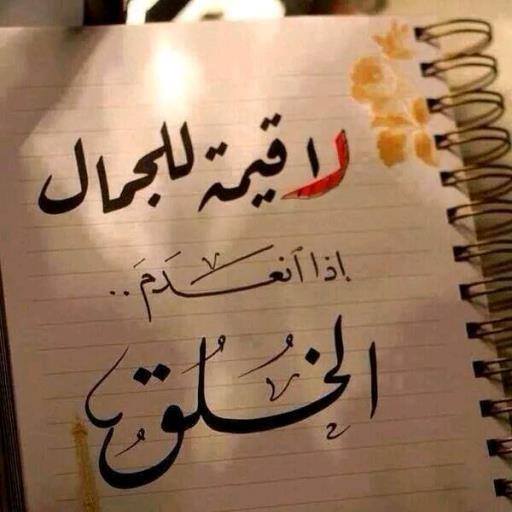 لا قيمة للجمال
إذا ٱنعَدَمَ..
الخُلُق